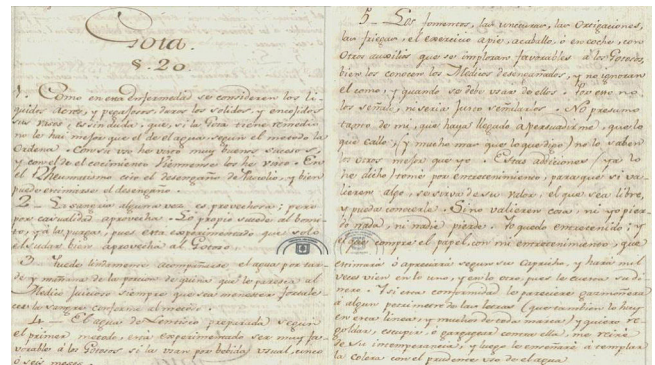 Gota.
§. 20
1. Como en esta enfermedad se consideren los li-
quidos acres, y pegajosos, duros los solidos, y encogidos
sus vasos, es sin duda, que si la Gota tiene remedio
no le hai mejor que el del agua segun el metodo la
Ordena. Con su uso he visto muy buenos sucesos,
y con el de el cocimiento
el Rheumatismo
puede encimarse el desengaño.
2 - La sangria alguna vez es provechosa; pero
por casualidad aprovecha. Lo propio sucede al bomi-
to, y a la purga, pues esta experimentado que solo
el sudar bien aprovecha al Gotoso.
3. Puede tambien acompañarse el agua por tar-
de y mañana de la porcion de quina que le parezca al
Medico juicioso siempre que sea menester fortale-
cer la sangre conforme al metodo.
4. El agua de preparada segun
el primer metodo, está experimentado ser muy fa-
vorable á los Gotosos si la usan por bebida usual, cinco
ó seis meses.
5 - Los fomentos, las unturas, las Ortigaciones,
las friegas, el exercicio a pie, a caballo, ó en coche, con
otros auxilios que se imploran favorables á los Gotosos,
bien los conocen los Medicos desengañados, y no ignoran
el como, y quando se debe usar de ellos. Por eso no
los señalo, ni sería justo señalarlos. No presumo
tanto de mi, que haya llegado á persuadirme, que lo
que callo, (y mucho mas que lo que digo) no lo saben
los otros mejor que yo. Estas adiciones (ya lo
he dicho) tomo por entretenimiento, para que si va-
lieren algo, se sirva de su valor, el que sea libre,
y pueda
Si no valieren cosa, ni yo pier-
do nada, ni nadie pierde. Yo quedo entretenido; y
el que compre el papel, con mi entretenimiento, que
segun su Capricho, y hará mil
veces bien en lo uno, y en lo otro pues le cuesta su di-
nero. Y si esta comunidad lo
á algun de las locas (que tambien lo hay
en esta linea, y muchos de cada marca) y quiere re-
goldar, escupir, ó gargagear contra ella, me reiré
de su intemperancia, y luego le enseñaré á templar
la colera con el prudente uso de el agua